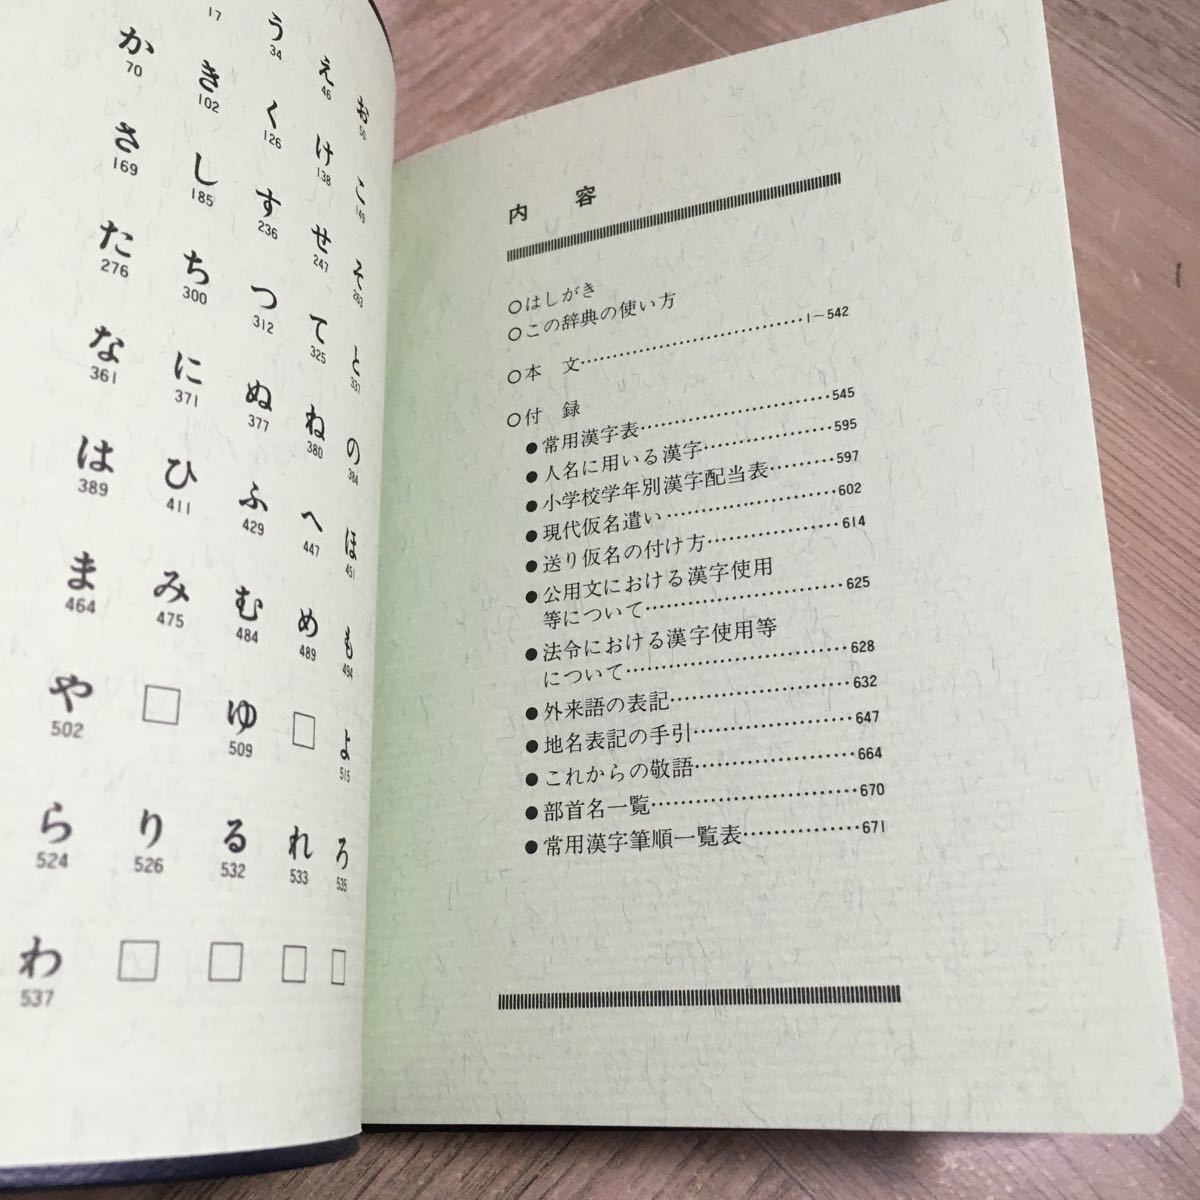 う え お
17 34 46 50
か き く け こ
70 102 126 138 149
さ し す せ そ
169 185 236 247 263
た ち つ て と
276 300 312 325 337
な に ぬ ね の
361 371 377 380 384
は ひ ふ へ ほ
389 411 429 447 451
ま み む め も
464 475 484 489 494
や □ ゆ □ よ
502 509 515
ら り る れ ろ
524 526 532 533 535
わ □ □ □ □
537
内 容
○はしがき
○この辞典の使い方
○本 文…………………………1～542
○付 録
●常用漢字表…………………………545
●人名に用いる漢字………………595
●小学校学年別漢字配当表………597
●現代仮名遣い……………………602
●送り仮名の付け方………………614
●公用文における漢字使用
等について…………………………625
●法令における漢字使用等
について……………………………628
●外来語の表記……………………632
●地名表記の手引…………………647
●これからの敬語…………………664
●部首名一覧………………………670
●常用漢字筆順一覧表……………671